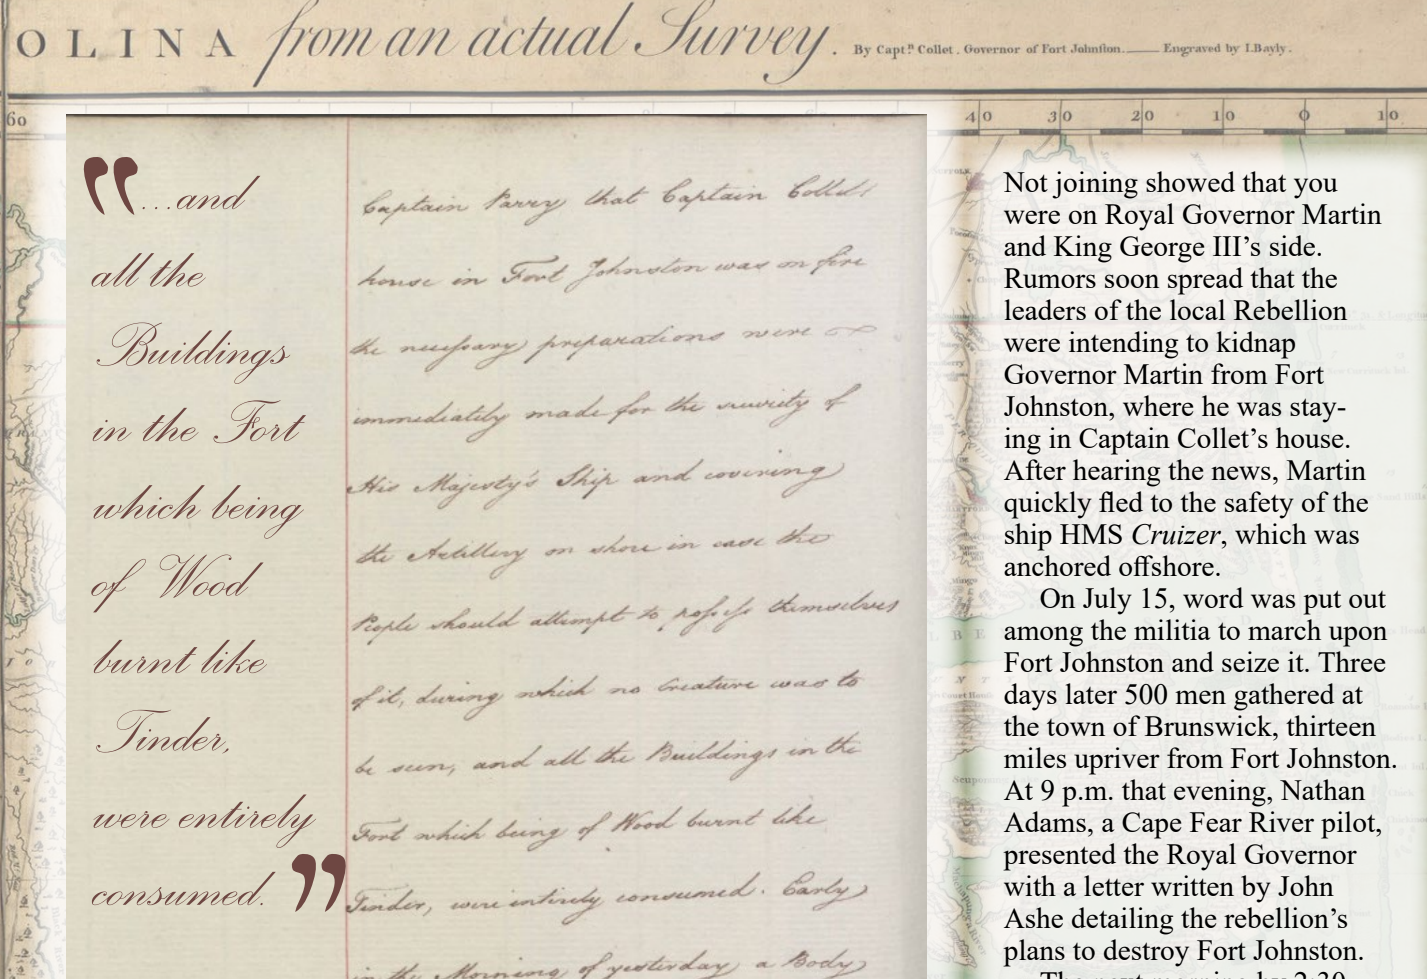 OLINA from an actual Survey. By Capt.n Collet. Governor of Fort Johnston. Engraved by I.Bayly.
60
40 30 20 10 0 10
“...and
all the
Buildings
in the Fort
which being
of Wood
burnt like
Tinder,
were entirely
consumed.”
Captain Parry that Captain Collet's
house in Fort Johnston was on fire
the necessary preparations were
immediately made for the security of
His Majesty's Ship and covering
the Artillery on shore in case the
People should attempt to possess themselves
of it, during which no Creature was to
be seen, and all the Buildings in the
Fort which being of Wood burnt like
Tinder, were entirely consumed. Early
in the Morning of yesterday a Body
Not joining showed that you
were on Royal Governor Martin
and King George III’s side.
Rumors soon spread that the
leaders of the local Rebellion
were intending to kidnap
Governor Martin from Fort
Johnston, where he was stay-
ing in Captain Collet’s house.
After hearing the news, Martin
quickly fled to the safety of the
ship HMS Cruizer, which was
anchored offshore.
On July 15, word was put out
among the militia to march upon
Fort Johnston and seize it. Three
days later 500 men gathered at
the town of Brunswick, thirteen
miles upriver from Fort Johnston.
At 9 p.m. that evening, Nathan
Adams, a Cape Fear River pilot,
presented the Royal Governor
with a letter written by John
Ashe detailing the rebellion’s
plans to destroy Fort Johnston.
The next morning by 2:30